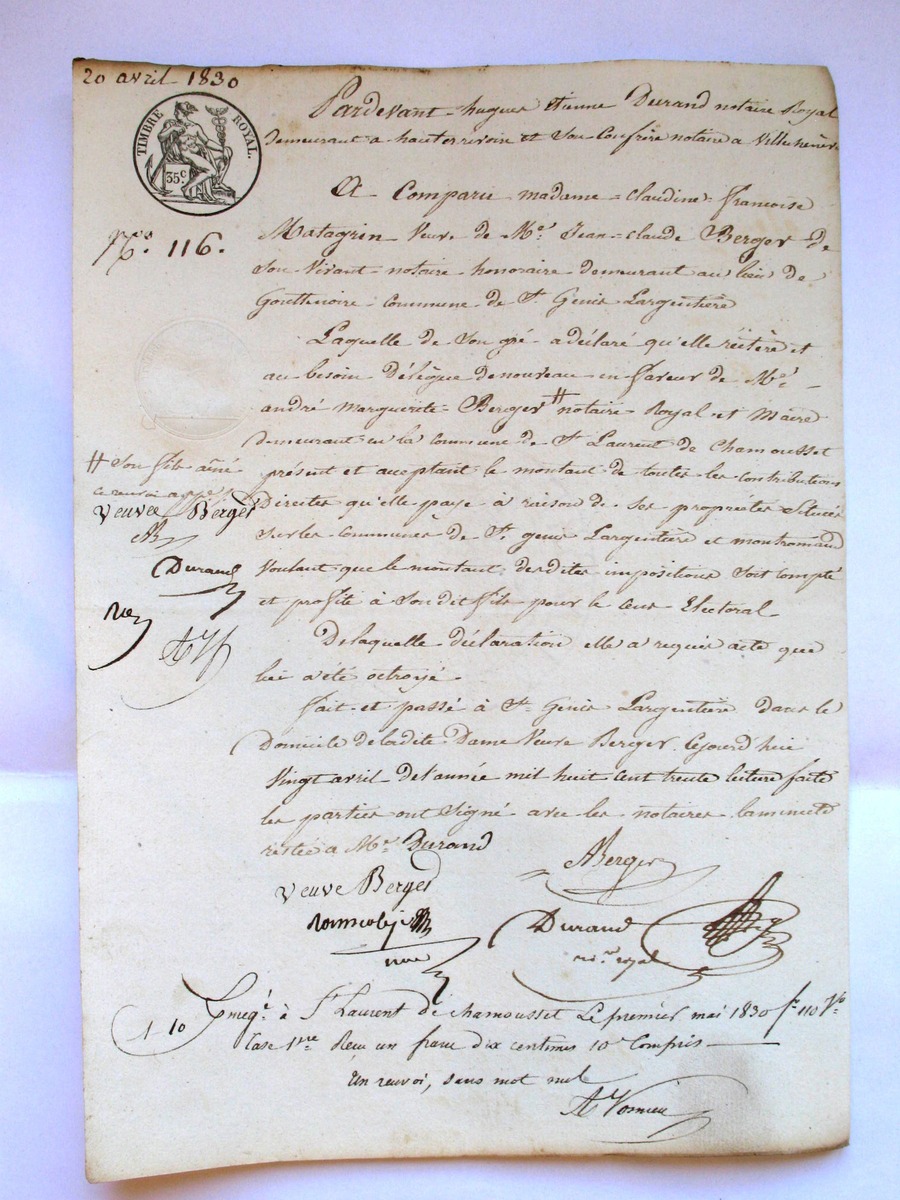 20 avril 1830
TIMBRE ROYAL.
35c
No. 116.
Pardevant hugues Etienne Durand notaire Royal
demeurant a hauterivoire et Son Confrère notaire a Ville
A Comparu madame claudine françoise
Matagrin Veuve de Me. Jean-claude Berger de
Son Vivant notaire honoraire demeurant au lieu de
Gouttenoire commune de St. Genis Largentière
Laquelle de Son gré a déclaré qu'elle réitère et
au besoin Délègue denouveau en faveur de Me.
andré Marguerite Berger # notaire Royal et Maire
demeurant en la commune de St. Laurent de Chamousset
présent et acceptant le montant de toutes les contributions
Directes qu'elle paye à raison de Ses propriétés Situées
Sur les communes de St. genis Largentière et montromand
Voulant que le montant desdites impositions Soit compté
et profite à Sondit fils pour le Cens Electoral
Delaquelle déclaration elle a requis acte que
lui a été octroyé.
fait et passé à St. Genis Largentière dans le
Domicile de ladite Dame Veuve Berger. Cejourd'hui
Vingt avril de l'année mil huit Cent trente lecture faite
les parties ont Signé avec les notaires. laminute
restée a Me. Durand
# Son fils ainé
ce renvoi app
Veuvee Berger
AB
Durand
Veuve Berger
ABerger
Durand
no.re royal
1 10
Enreg.é à St Laurent de chamousset Le premier mai 1830 fo 110 Vo.
Case 1ere Reçu un franc dix centimes 10c Compris
Un renvoi, sans mot nul